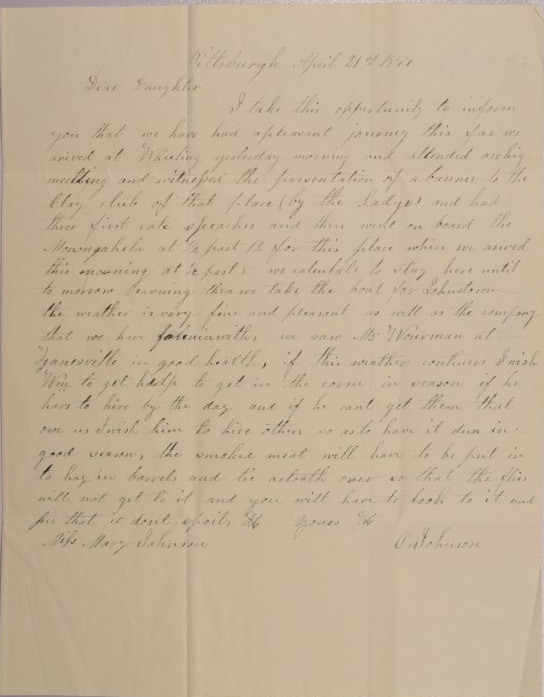 Pittsburgh April 21st 184
Dear Daughter
I take this opportunity to inform
you that we have had apleasant journey this far we
arived at Wheeling yesterday morning and attended awhig
meetting and witnessed the presentation of a banner to the
Clay club of that place (by the ladys) and had
three first rate speaches and then went on board the
Monongahela at ½ past 12 for this place where we arived
this morning at ½ past 8 we calculate to stay here until
to morrow evening then we take the boat for Johnstown
the weather is vary fine and pleasant as well as the company
that we have falen in with, we saw Mr Wourman at
Zanesville in good health, if this weather continues I wish
Wm to get help to get in the corn in season if he
has to hire by the day and if he cant get them that
owe us I wish him to hire others so as to have it dun in
good season, the smoked meat will have to be put in
to hay in barrels and tie acloath over so that the flies
will not get to it and you will have to look to it and
see that it dont spoil, &c yours &c
Miss Mary Johnson O. Johnson